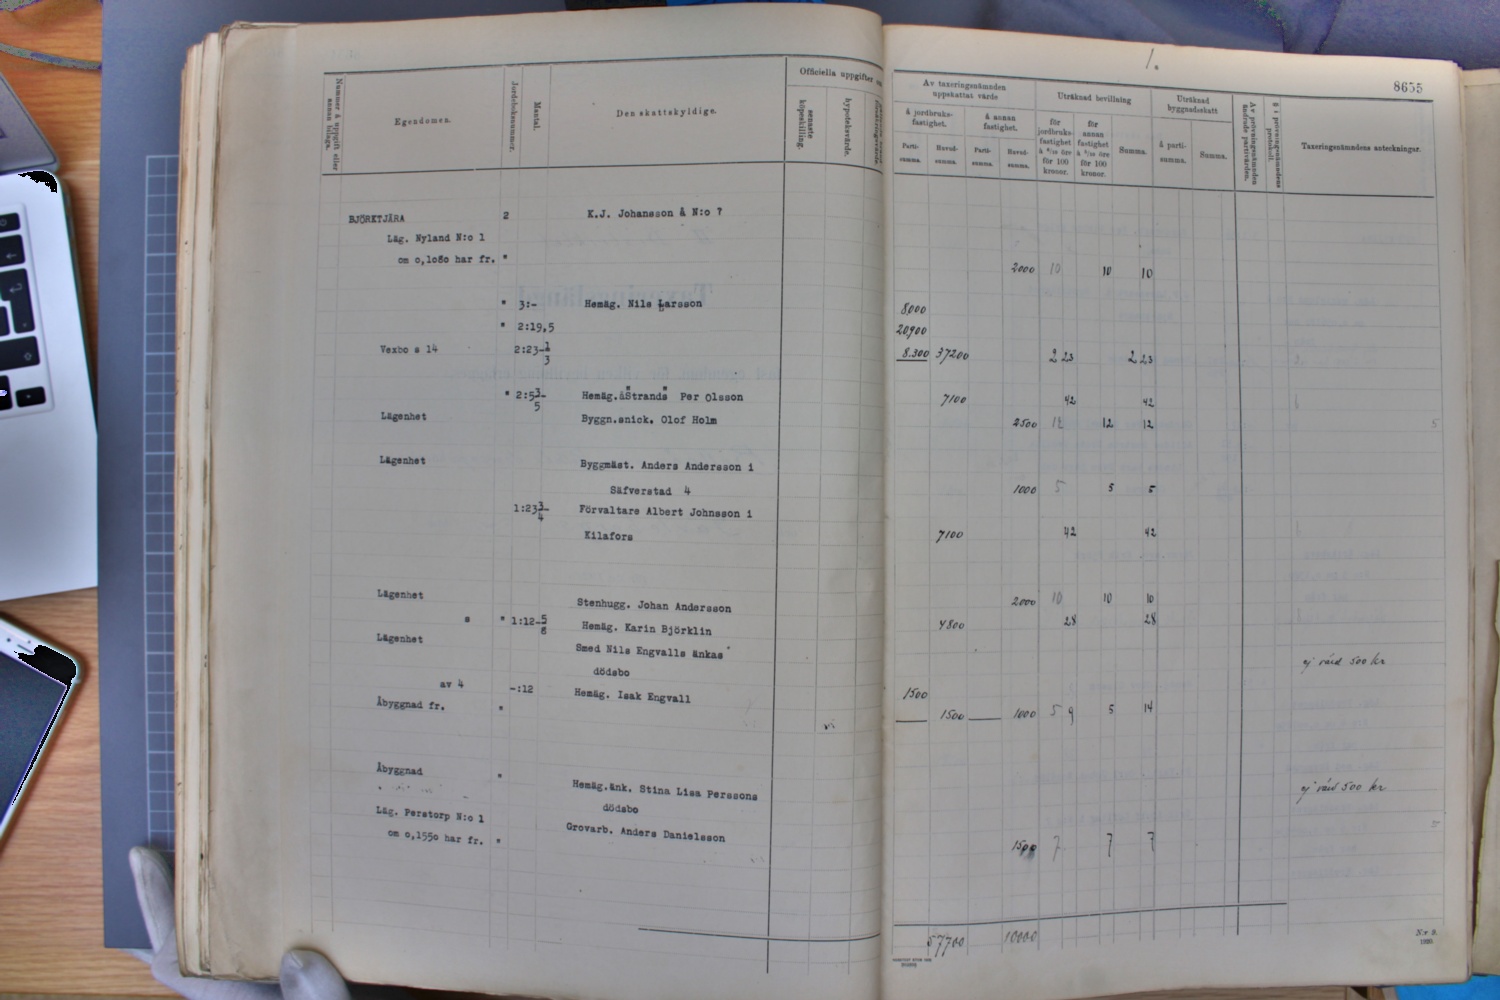 1.
8655
Nummer å uppgift eller annan bilaga.
Egendomen.
Jordeboksnummer.
Mantal.
Den skattskyldige.
Officiella uppgifter
senaste köpeskilling.
hypoteksvärde.
Av taxeringsnämnden uppskattat värde
å jordbruksfastighet.
å annan fastighet.
Partisumma.
Huvudsumma.
Partisumma.
Huvudsumma.
Uträknad bevillning
för jordbruksfastighet å 6/10 öre för 100 kronor.
för annan fastighet å 5/10 öre för 100 kronor.
Summa.
Uträknad byggnadsskatt
å partisumma.
Summa.
Av prövningsnämnden ändrade partivärden.
§ i prövningsnämndens protokoll.
Taxeringsnämndens anteckningar.
BJÖRKTJÄRA 2 K.J. Johansson å N:o 7
Läg. Nyland N:o 1
om 0,1080 har fr. " 2000 10 10 10
" 3:- Hemäg. Nils Larsson 8,000
" 2:19,5 20,900
Vexbo s 14 2:23-1/3 8.300 37200 2 23 2 23
" 2:53-/5 Hemäg. "Strands" Per Olsson 7100 42 42
Lägenhet Byggn.snick. Olof Holm 2500 12 12 12
Lägenhet Byggmäst. Anders Andersson i
Säfverstad 4 1000 5 5 5
1:23 3/4 Förvaltare Albert Johnsson i
Kilafors 7100 42 42
Lägenhet Stenhugg. Johan Andersson 2000 10 10 10
s " 1:12-5/8 Hemäg. Karin Björklin 4800 28 28
Lägenhet Smed Nils Engvalls änkas
dödsbo ej värd 500 kr
av 4 -:12 Hemäg. Isak Engvall 1500
Åbyggnad fr. " 1500 1000 5 9 5 14
Åbyggnad " Hemäg.änk. Stina Lisa Perssons
dödsbo ej värd 500 kr
Läg. Perstorp N:o 1 Grovarb. Anders Danielsson
om 0,1550 har fr. " 1500 7 7 7
57700 10000
N:r 9.
1920.